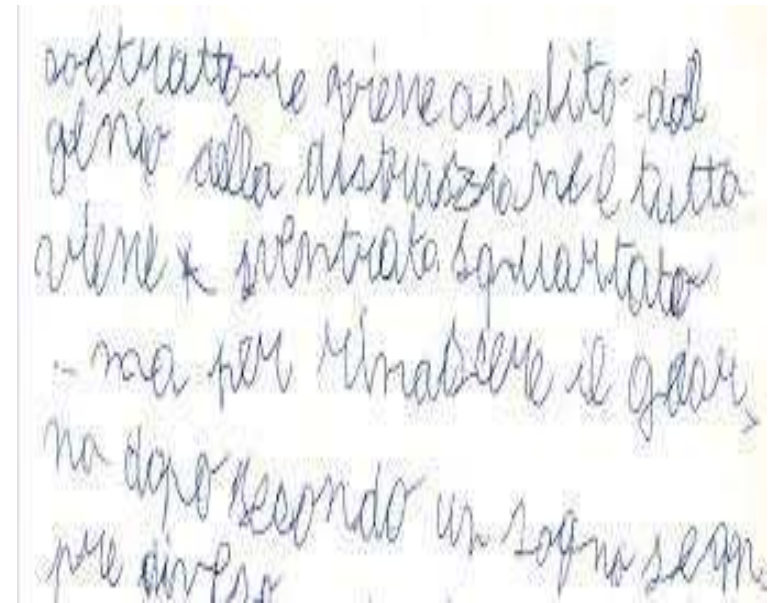 sostrattore viene assalito dal
genio della distruzzione e tutto
viene sventrato squartato
- ma per rinascere il gior
no dopo secondo un sogno sem
pre diverso